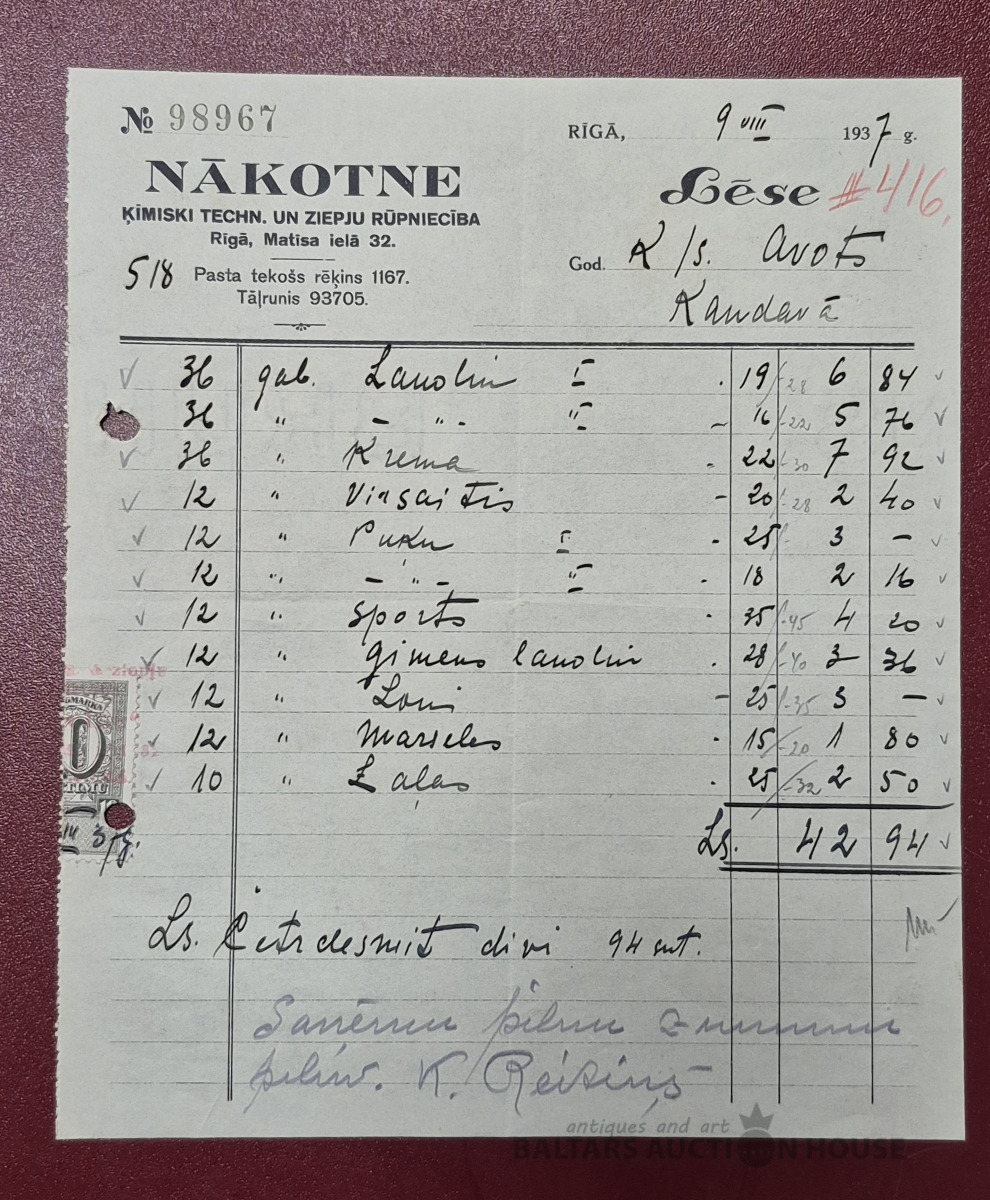 № 98967
RĪGĀ, 9 VIII 1937 g.
NĀKOTNE
ĶĪMISKI TECHN. UN ZIEPJU RŪPNIECĪBA
Rīgā, Matīsa ielā 32.
518 Pasta tekošs rēķins 1167.
Tāļrunis 93705.
Lēse #416.
God. K/s. Avots
Kandavā
36 gab. Lanolin I . 19/-28 6 84
36 " - " - "II - 16/-22 5 76
36 " Krema . 22/-30 7 92
12 " Virsaitis - 20/-28 2 40
12 " Puķu I . 25/- 3 -
12 " - " - "II . 18 2 16
12 " Sports . 35/-45 4 20
12 " Ģimens lanolin . 28/-40 3 36
12 " - 25/-35 3 -
12 " Marseles . 15/-20 1 80
10 " Zaļas . 25/-32 2 50
Ls. 42 94
Ls. Četrdesmit divi 94 snt.
Saņēmu pilnu summu
pilnv. K. Reisiņš
ziepju
0
antiques and art
BALTARS AUCTION HOUSE